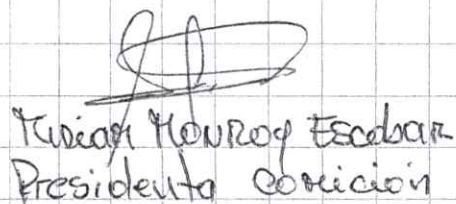 Miriam Monroy Escobar
Presidenta comición